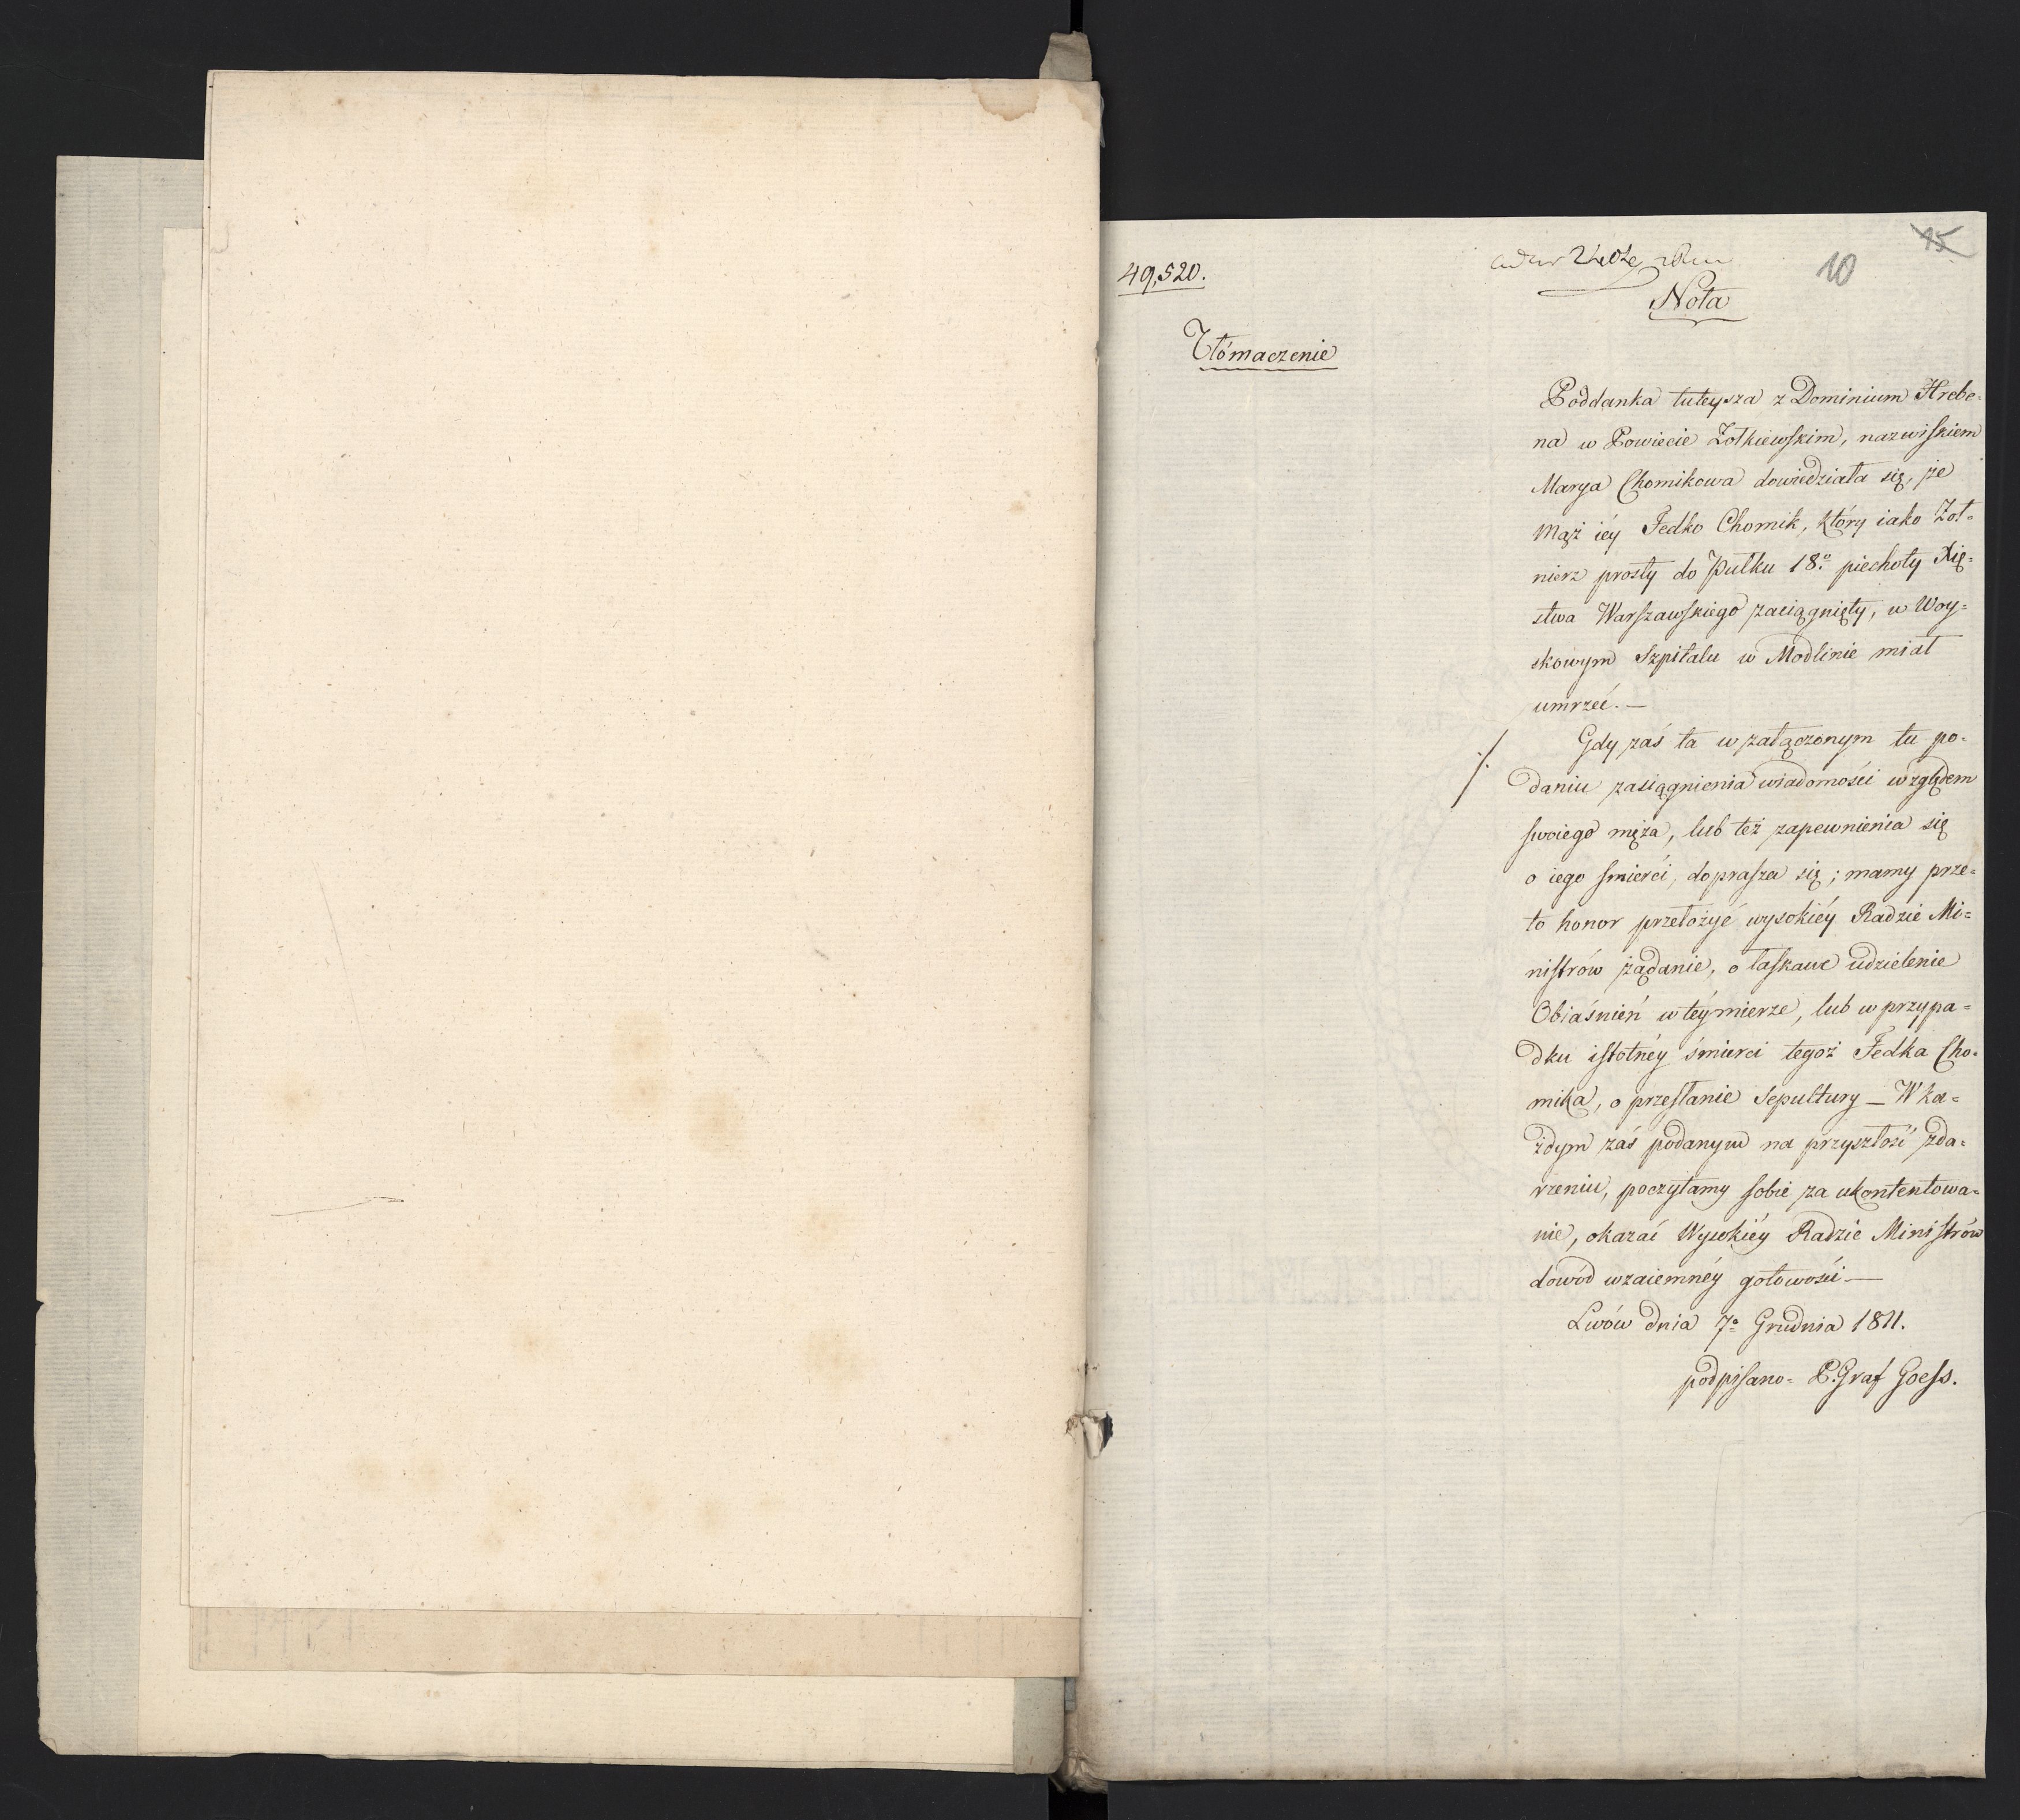 15
10
49,520.
Nota
Tłómaczenie
Poddanka tuteysza z Dominium Hrebe=
na w Powiecie Zołkiewskim, nazwiskiem
Marya Chomikowa dowiedziała się, że
Mąż iéy Fedko Chomik, który iako Żoł=
nierz prosty do Pułku 18.º piechoty Xię=
stwa Warszawskiego zaciągnięty, w Woy=
skowym Szpitalu w Modlinie miał
umrzeć. —
Gdy zaś ta w załączonym tu po=
./.
daniu zasiągnienia wiadomości względem
swoiego męża, lub też zapewnienia się
o iego smierci, doprasza się; mamy prze=
to honor przełożyć wysokiéy Radzie Mi=
nistrów żądanie, o łaskawe udzielenie
Obiaśnień w téy mierze, lub w przypa=
dku istotnéy śmierci tegoż Fedka Cho=
mika, o przesłanie Sepultury — W ka=
żdym zaś podanym na przyszłość zda=
rzeniu, poczytamy sobie za ukontentowa=
nie, okazać Wysokiéy Radzie Ministrów
dowód wzaiemnéy gotowości —
Lwów dnia 7º Grudnia 1811.
podpisano= P. Graf Goess.